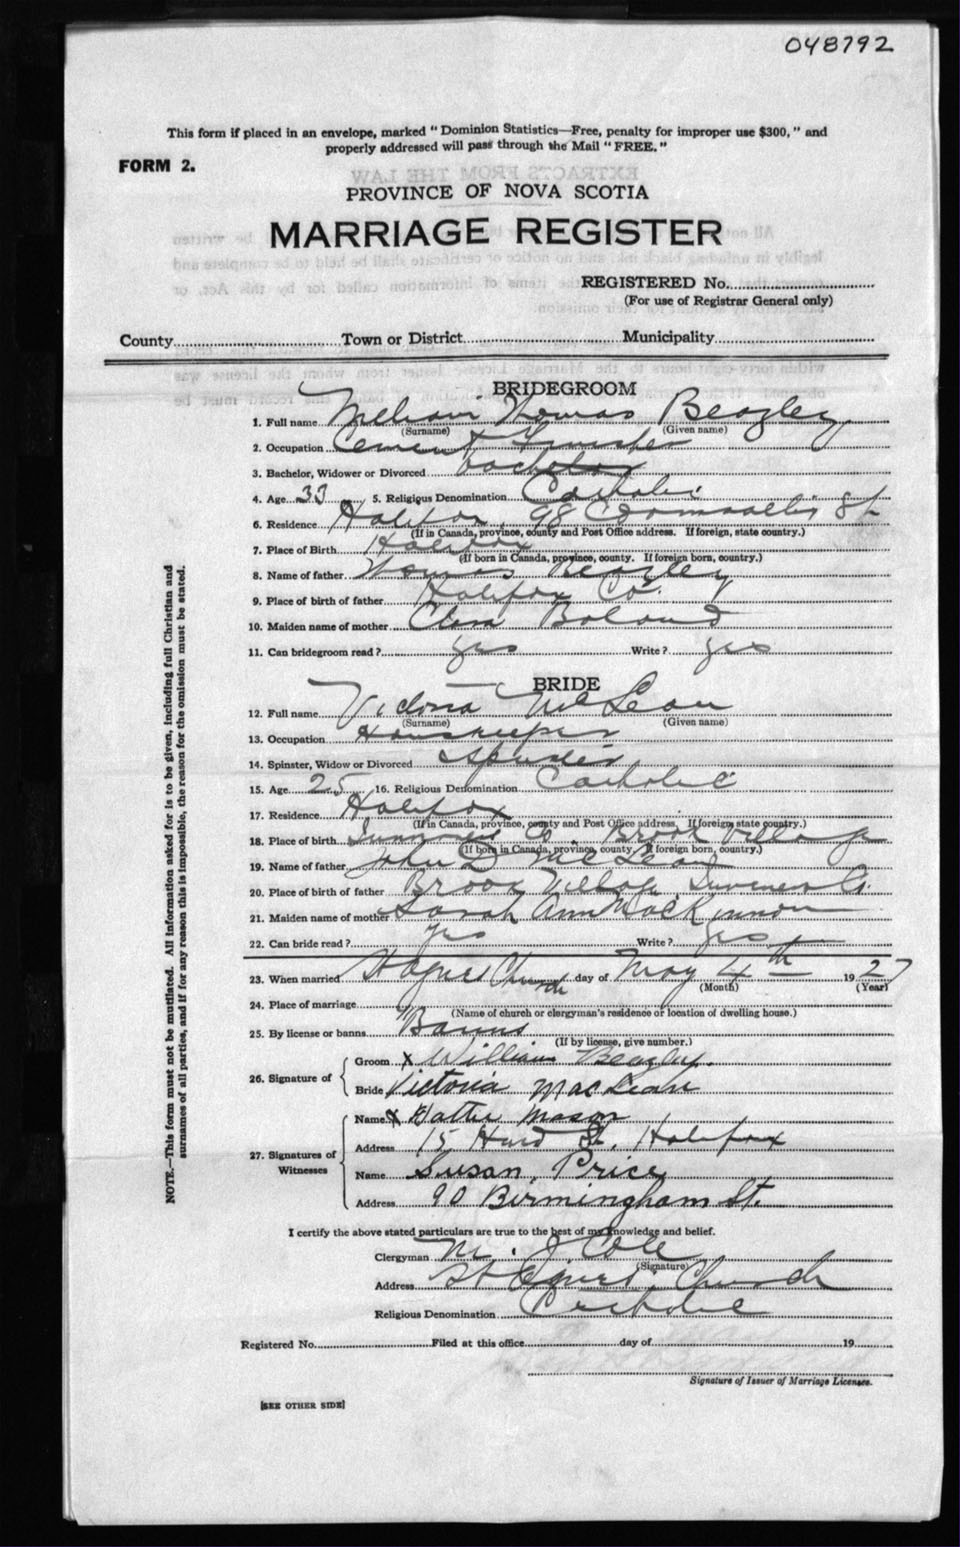 048792
This form if placed in an envelope, marked "Dominion Statistics—Free, penalty for improper use $300," and
properly addressed will pass through the Mail "FREE."
FORM 2.
EXTRACTS FROM THE LAW
PROVINCE OF NOVA SCOTIA
MARRIAGE REGISTER
REGISTERED No.
(For use of Registrar General only)
County Town or District Municipality
BRIDEGROOM
1. Full name William Thomas Beazley
(Surname) (Given name)
2. Occupation Cement Finisher
3. Bachelor, Widower or Divorced bachelor
4. Age 33 5. Religious Denomination Catholic
6. Residence Halifax, 98 Cornwallis St
(If in Canada, province, county and Post Office address. If foreign, state country.)
7. Place of Birth Halifax
(If born in Canada, province, county. If foreign born, country.)
8. Name of father Thomas Beazley
9. Place of birth of father Halifax Co.
10. Maiden name of mother Clara Boland
11. Can bridegroom read? yes Write? yes
BRIDE
12. Full name Victoria McLean
(Surname) (Given name)
13. Occupation Housekeeper
14. Spinster, Widow or Divorced Spinster
15. Age 25 16. Religious Denomination Catholic
17. Residence Halifax
(If in Canada, province, county and Post Office address. If foreign state country.)
18. Place of birth Inverness Co Brook Village
(If born in Canada, province, county. If foreign born, country.)
19. Name of father John D McLean
20. Place of birth of father Brook Village Inverness Co.
21. Maiden name of mother Sarah Ann MacKinnon
22. Can bride read? yes Write? yes
23. When married St Agnes Church day of May 4th 1927
(Month) (Year)
24. Place of marriage
(Name of church or clergyman's residence or location of dwelling house.)
25. By license or banns Banns
(If by license, give number.)
26. Signature of
Groom X William Beazley.
Bride Victoria MacLean
27. Signatures of Witnesses
Name X Hattie Mason
Address 15 Hurd St, Halifax
Name Susan Price
Address 90 Birmingham St.
I certify the above stated particulars are true to the best of my knowledge and belief.
Clergyman M. J Cole
(Signature)
Address St Agnes Church
Religious Denomination Catholic
Registered No. Filed at this office day of 19
Signature of Issuer of Marriage Licenses.
[SEE OTHER SIDE]
NOTE.—This form must not be mutilated. All information asked for is to be given, including full Christian and
surnames of all parties, and if for any reason this is impossible, the reason for the omission must be stated.